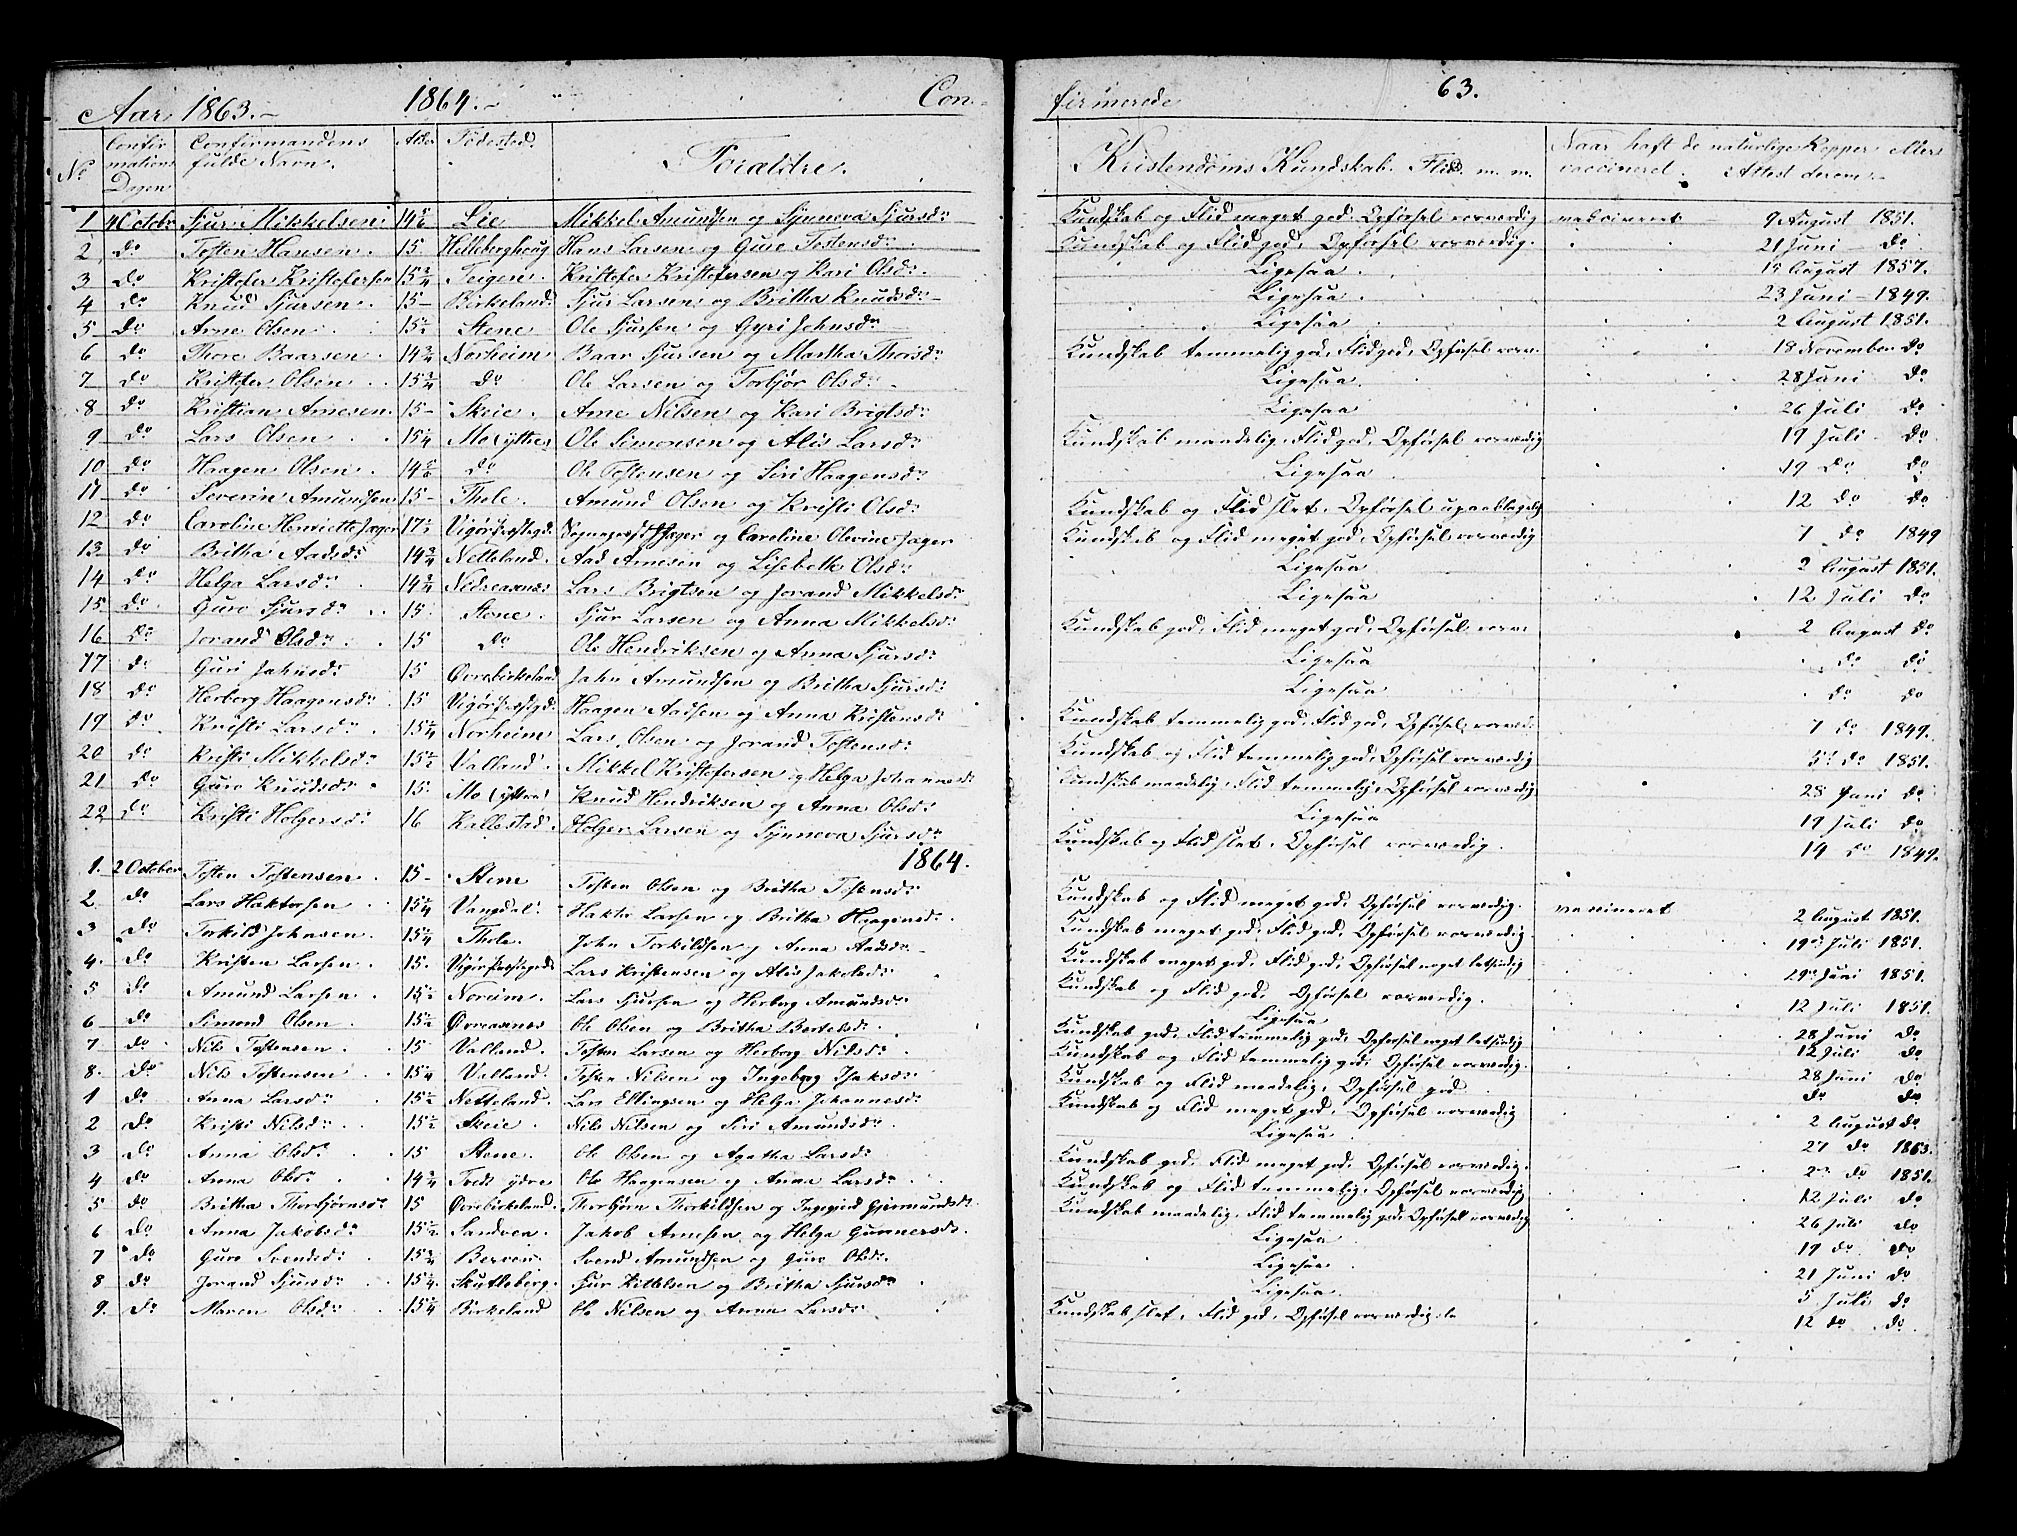 Aar 1863.- 1864.- Con- firmerede 63.
No Confirmations Dagen Confirmandens fulde Navn. Alder Födested. Forældre. Kristendoms Kundskab. Flid. m. m. Naar haft de naturlige Kopper eller vaccineret. Attest derom.-
1 4 Octobr Sjur Mikkelsen Lie Mikkel Amundsen og Synneva Sjursdr Kundskab og Flid meget god. Opførsel rosværdig vakcineret 9 August 1851.
2 do Tosten Hansen 15. Hans Larsen og Guro Tostensdr Kundskab og Flid god, Opførsel rosværdig. 21 Juni do
3 do Kristofer Kristofersen 15 3/4 Teigen. Kristofer Kristofersen og Kari Olsdr. Ligesaa. August 1857.
4 do Knud Sjursen. 15- Birkeland. Sjur Larsen og Britha Knudsdr Ligesaa. 23 Juni - 1849.
5 do Arne Olsen. 15 1/2 Stene Ole Sjursen og Gyri Johnsdr Ligesaa 2 August 1851.
6 do Thore Baarsen. 14 3/4 Norheim Baar Sjursen og Martha Thorsdr Kundskab temmelig god, Flid god, Opførsel rosv. 18 November do
7 do Kristofer Olsen 15 3/4 do Ole Larsen og Torbjør Olsdr Ligesaa. 28 Juni do
8 do Kristian Arnesen. 15- Skeie. Arne Nilsen og Kari Brigtsdr Ligesaa 26 Juli do
9 do Lars Olsen 15 1/4 Mo Ole Simonsen og Alis Larsdr Kundskab maadelig, Flid god, Opførsel rosværdig 19 Juli do
10 do Haagen Olsen. do Ole Tostensen og Siri Haagensdr Ligesaa 19 do do
11 do Severin Amundsen 15- Thole. Amund Olsen og Kristi Olsdr Kundskab og Flid slet. Opførsel upaaklagelig 12 do do
12 do Caroline Henriette Jæger 17 1/2 Vigörspræstegd. Sognepræst Jæger og Caroline Olevine Jæger Kundskab og Flid meget god, Opførsel rosværdig 7 do 1849
13 do Britha Aadsdr 14 3/4 Netteland. Aad Arnesen og Lisebeth Olsdr Ligesaa 2 August 1851.
14 do Helga Larsdr 14 3/4 Nedreaxnes Lars Brigtsen og Jorand Mikkelsdr Ligesaa 12 Juli do
15 do Guro Sjursdr 15 Stene. Sjur Larsen og Anna Mikkelsdr Kundskab god, Flid meget god, Opførsel rosv. 2 August do
16 do Jorand Olsdr 15 do Ole Hendriksen og Anna Sjursdr Ligesaa do do
17 do Guri Jahnsdr 15 Øvrebirkeland Jahn Amundsen og Britha Sjursdr Ligesaa do do
18 do Herborg Haagensdr 15 Vigörspræstegd. Haagen Aadsen og Anna Kristensdr Kundskab temmelig god, Flid god, Opførsel rosværd. 7 do 1849.
19 do Kristi Larsdr 15 1/4 Norheim Lars Olsen og Jorand Tostensdr Kundskab og Flid temmelig god, Opførsel rosværdig 5 do 1851.
20 do Kristi Mikkelsdr 15 1/2 Valland. Mikkel Kristofersen og Helga Johannesdr Kundskab maadelig, Flid temmelig, Opførsel rosværdig 28 Juni do
21 do Guro Knudsdr 15. Mo (yttre) Knud Hendriksen og Anna Olsdr Ligesaa 19 Juli do
22 do Kristi Holgersdr 16 Kallestad. Holger Larsen og Synneva Sjursdr Kundskab og Flid slet. Opførsel rosværdig. 14 do 1849.
1864.
1. 2 October Tosten Tostensen 15- Stene Tosten Olsen og Britha Tostensdr Kundskab og Flid meget god, Opførsel rosværdig. vaccineret 2 August 1851.
2. do Lars Haktorsen 15 1/4 Vangdal. Haktor Larsen og Britha Haagensdr. Kundskab meget god, Flid god, Opførsel rosværdig. 19 Juli 1851.
3 do Torkild Johnsen. 15 1/4 Thole. John Torkildsen og Anna Aadsdr Kundskab meget god, Flid god, Opførsel noget letsindig Juni 1851.
4. do Kristen Larsen 15. Vigörspræstegd. Lars Kristensen og Alis Jakobsdr Kundskab og Flid god, Opførsel rosværdig. 12 Juli 1851.
5 do Amund Larsen 15 1/2 Noreim. Lars Sjursen og Herborg Amundsdr Ligesaa 28 Juni do
6 do Simond Olsen 15 1/2 Øvreaxnes Ole Olsen og Britha Bertelsdr. Kundskab god, Flid temmelig god, Opførsel noget letsindig 12 Juli do
7 do Nils Tostensen 15 Valland. Tosten Larsen og Herborg Nilsdr Kundskab og Flid temmelig god. Opførsel rosværdig. 28 Juni do
8. do Nils Tostensen 15 1/4 Valland. Tosten Nilsen og Ingeborg Isaksdr Kundskab og Flid maadelig, Opførsel god do do
1 do Anna Larsdr 15 1/2 Netteland. Lars Ellingsen og Helga Johannesdr Kundskab og Flid meget god, Opførsel rosværdig 2 August do
2 do Kristi Nilsdr 15 1/2 Skeie. Nils Nilsen og Siri Amundsdr. Ligesaa 27 do 1863.
3 do Anna Olsdr 15 Stene. Ole Olsen og Agatha Larsdr Kundskab god, Flid meget god, Opførsel rosværdig. do 1851.
4 do Anna Olsdr 14 3/4 Tveit ydre Ole Haagensen og Anna Larsdr Kundskab og Flid temmelig, Opførsel rosværdig 12 Juli do
5 do Britha Thorbjørnsdr 15 Øvrebirkeland. Thorbjørn Thorkildsen og Ingegjerd Gjermundsdr. Kundskab maadelig, Flid temmelig god, Opførsel rosværdig 26 Juli do
6 do Anna Jakobsdr 15 1/2 Sandven. Jakob Arnesen og Helga Gunnarsdr. Ligesaa 19 do do
7 do Guro Svendsdr 15 3/4 Berven Svend Amundsen og Guro Olsdr. Ligesaa 21 Juni do
8 do Jorand Sjursdr 15 1/4 Skutleberg. Sjur Kittelsen og Britha Sjursdr Ligesaa 5 Juli do
9. do Maren Olsdr 15 1/4 Birkeland Ole Nilsen og Anna Larsdr Kundskab slet, Flid god, Opførsel rosværdig 12 do do